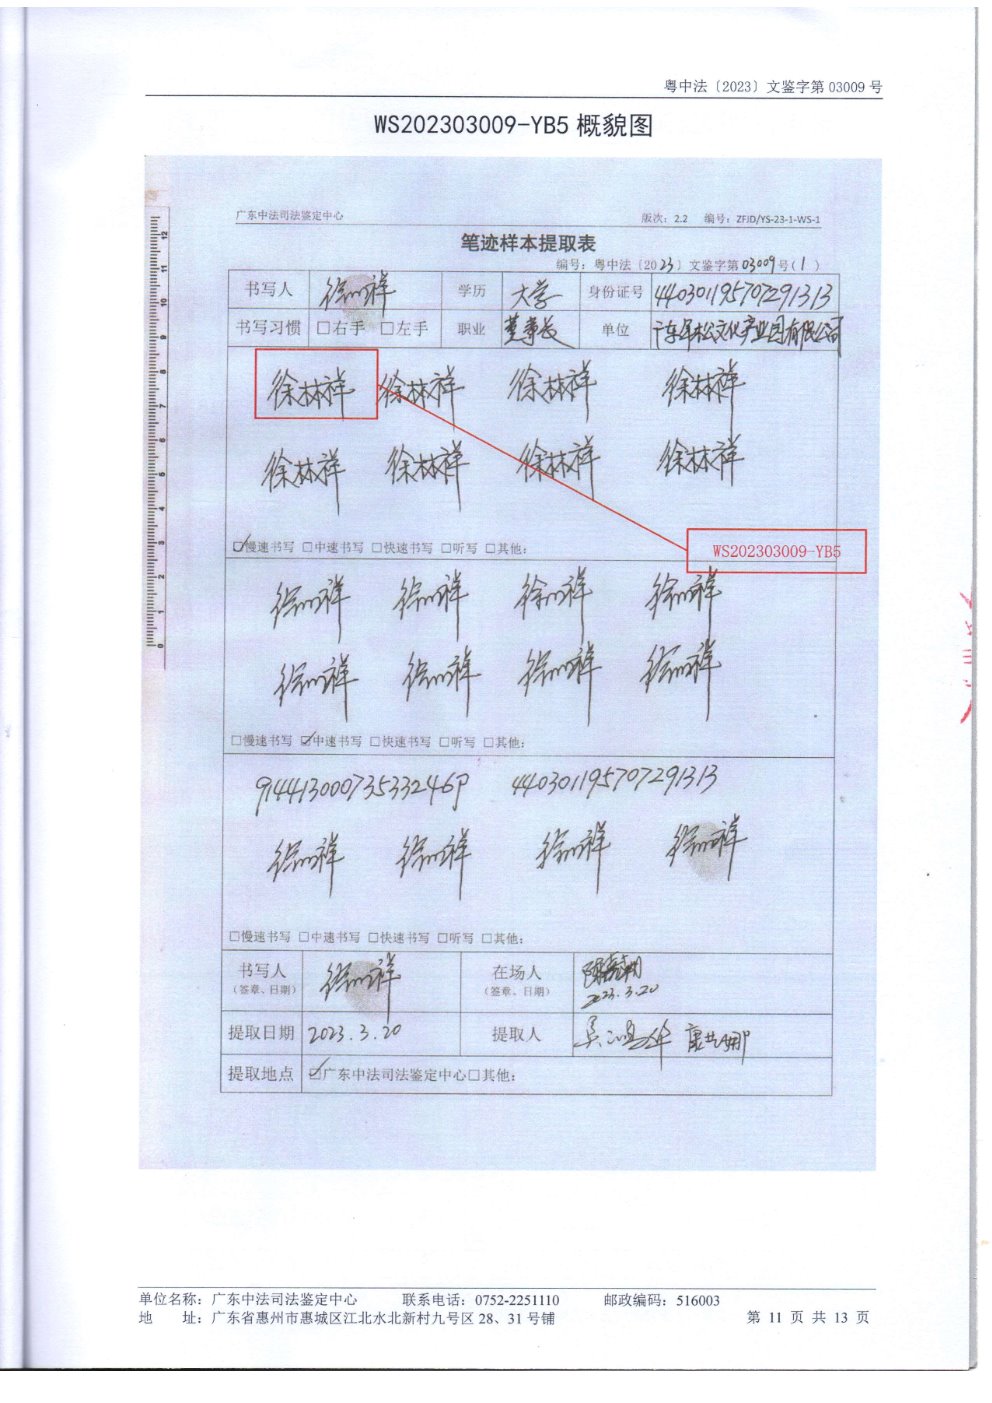 粤中法〔2023〕文鉴字第 03009 号
WS202303009-YB5 概貌图
广东中法司法鉴定中心 版次：2.2 编号：ZFJD/YS-23-1-WS-1
笔迹样本提取表
编号：粤中法〔2023〕文鉴字第03009号(1)
书写人 徐林祥 学历 大学 身份证号 440301195707291313
书写习惯 □右手 □左手 职业 董事长 单位 广东年松文化产业园有限公司
徐林祥 徐林祥 徐林祥 徐林祥
徐林祥 徐林祥 徐林祥 徐林祥
☑慢速书写 □中速书写 □快速书写 □听写 □其他：
WS202303009-YB5
徐林祥 徐林祥 徐林祥 徐林祥
徐林祥 徐林祥 徐林祥 徐林祥
□慢速书写 ☑中速书写 □快速书写 □听写 □其他：
91441300073533246P 440301195707291313
徐林祥 徐林祥 徐林祥 徐林祥
□慢速书写 □中速书写 □快速书写 □听写 □其他：
书写人 徐林祥 在场人
（签章、日期） （签章、日期） 2023.3.20
提取日期 2023.3.20 提取人
提取地点 ☑广东中法司法鉴定中心□其他：
单位名称：广东中法司法鉴定中心 联系电话：0752-2251110 邮政编码：516003
地 址：广东省惠州市惠城区江北水北新村九号区 28、31 号铺 第 11 页 共 13 页